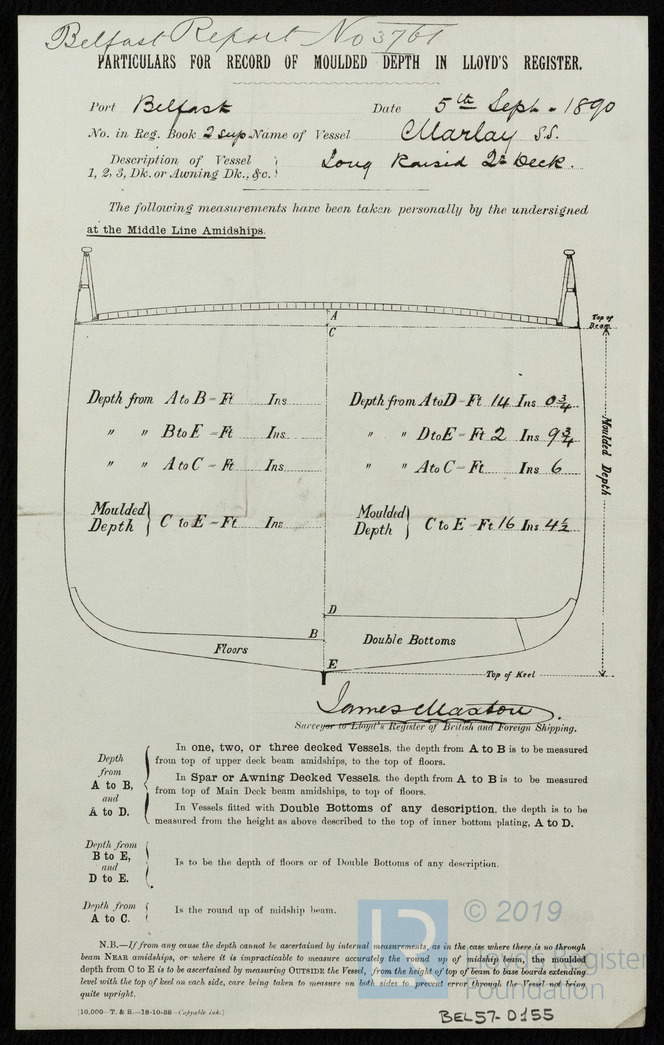 Belfast Report No 3761
PARTICULARS FOR RECORD OF MOULDED DEPTH IN LLOYD'S REGISTER.
Port Belfast Date 5th Sept. 1890
No. in Reg. Book 2 sup Name of Vessel Marlay S.S.
Description of Vessel
1, 2, 3, Dk. or Awning Dk., &c. Long Raised Qr Deck.
The following measurements have been taken personally by the undersigned
at the Middle Line Amidships.
A
C
Top of
Beam
Depth from A to B - Ft Ins Depth from A to D - Ft 14 Ins 0 3/4
" " B to E - Ft Ins " " D to E - Ft 2 Ins 9 3/4
" " A to C - Ft Ins " " A to C - Ft Ins 6
Moulded
Depth } C to E - Ft Ins Moulded
Depth } C to E - Ft 16 Ins 4 1/2
Moulded Depth
D
B
Floors
Double Bottoms
E
Top of Keel
James Maxton.
Surveyor to Lloyd's Register of British and Foreign Shipping.
Depth
from
A to B,
and
A to D.
In one, two, or three decked Vessels, the depth from A to B is to be measured
from top of upper deck beam amidships, to the top of floors.
In Spar or Awning Decked Vessels, the depth from A to B is to be measured
from top of Main Deck beam amidships, to top of floors.
In Vessels fitted with Double Bottoms of any description, the depth is to be
measured from the height as above described to the top of inner bottom plating, A to D.
Depth from
B to E,
and
D to E.
Is to be the depth of floors or of Double Bottoms of any description.
Depth from
A to C.
Is the round up of midship beam.
N.B.—If from any cause the depth cannot be ascertained by internal measurements, as in the case where there is no through
beam NEAR amidships, or where it is impracticable to measure accurately the round up of midship beam, the moulded
depth from C to E is to be ascertained by measuring OUTSIDE the Vessel, from the height of top of beam to base boards extending
level with the top of keel on each side, care being taken to measure on both sides to prevent error through the Vessel not being
quite upright.
[10,000—T. & S.—18-10-88—Copyable Ink.]
LR
© 2019
Lloyd's Register
Foundation
BEL57-0155